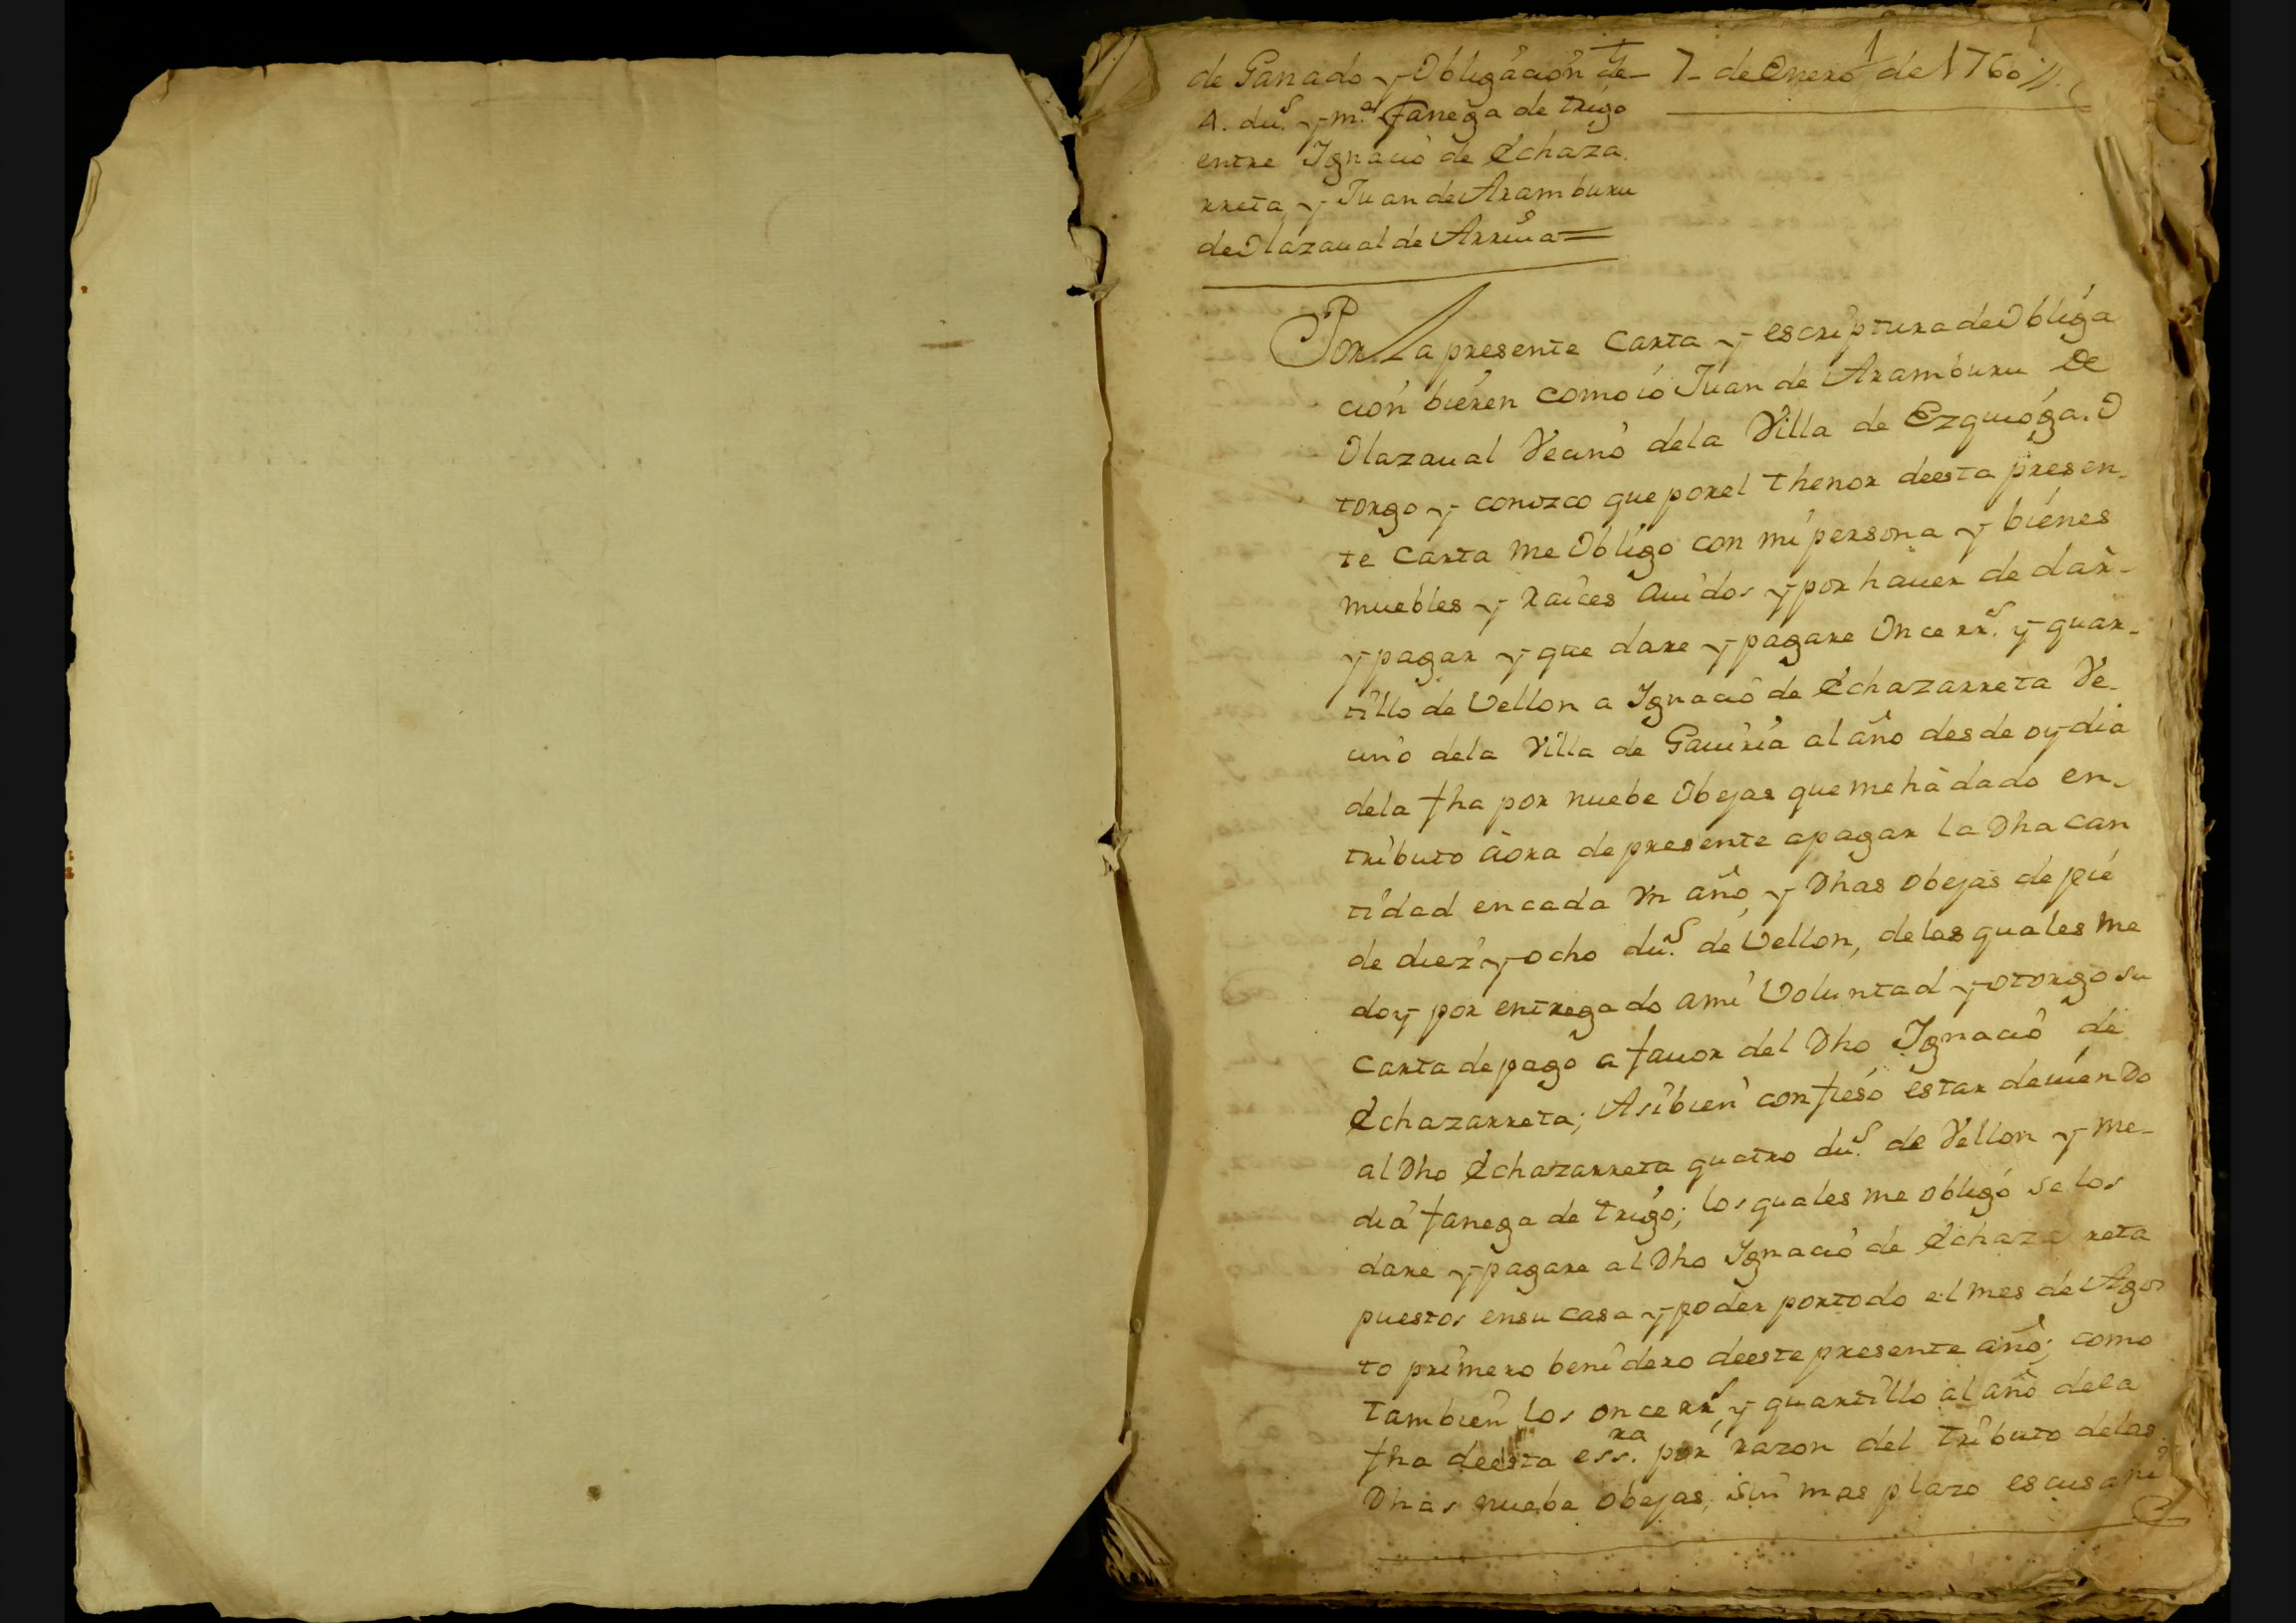 de Ganado y Obligación de
7- de Enero de 1760//.
1
4. du.s y m.a fanega de trigo
entre Ignacio de Echaza
rreta y Juan de Aramburu
de Olazaual de Arriua=
Por la presente Carta y escriptura de Obliga
ción bieren como io Juan de Aramburu De
Olazaual Vecino dela Villa de Ezquioga. O
torgo y conozco que por el thenor de esta presen-
te Carta me Obligo con mi persona y bienes
muebles y Raíces auidos y por hauer de dar-
y pagar y que dare y pagare Once rr.s y quar-
tillo de Vellon a Ignacio de Echazarreta Ve-
cino dela Villa de Gauiria al año desde oy dia
dela fha por nuebe Obejas que me há dado en-
tributo áora de presente a pagar la Dha can
tidad en cada Vn año, y Dhas obejas de pie
de diez y ocho du.s de Vellon, de las quales me
doy por entregado a mi Voluntad y otorgo su
Carta de pago a fauor del Dho Ignacio de
Echazarreta; Asi bien confieso estar deuienDo
al Dho Echazarreta quatro du.s de Vellon y me-
dia fanega de trigo; los quales me obligo se los
dare y pagare al Dho Ignacio de Echaza rreta
puestos en su casa y poder por todo el mes de Agos
to primero benidero de este presente año; como
tambien los once rr.s y quartillo al año de la
fha de esta ess.ra por razon del tributo de las
Dhas nuebe obejas, sin mas plazo escusa ni